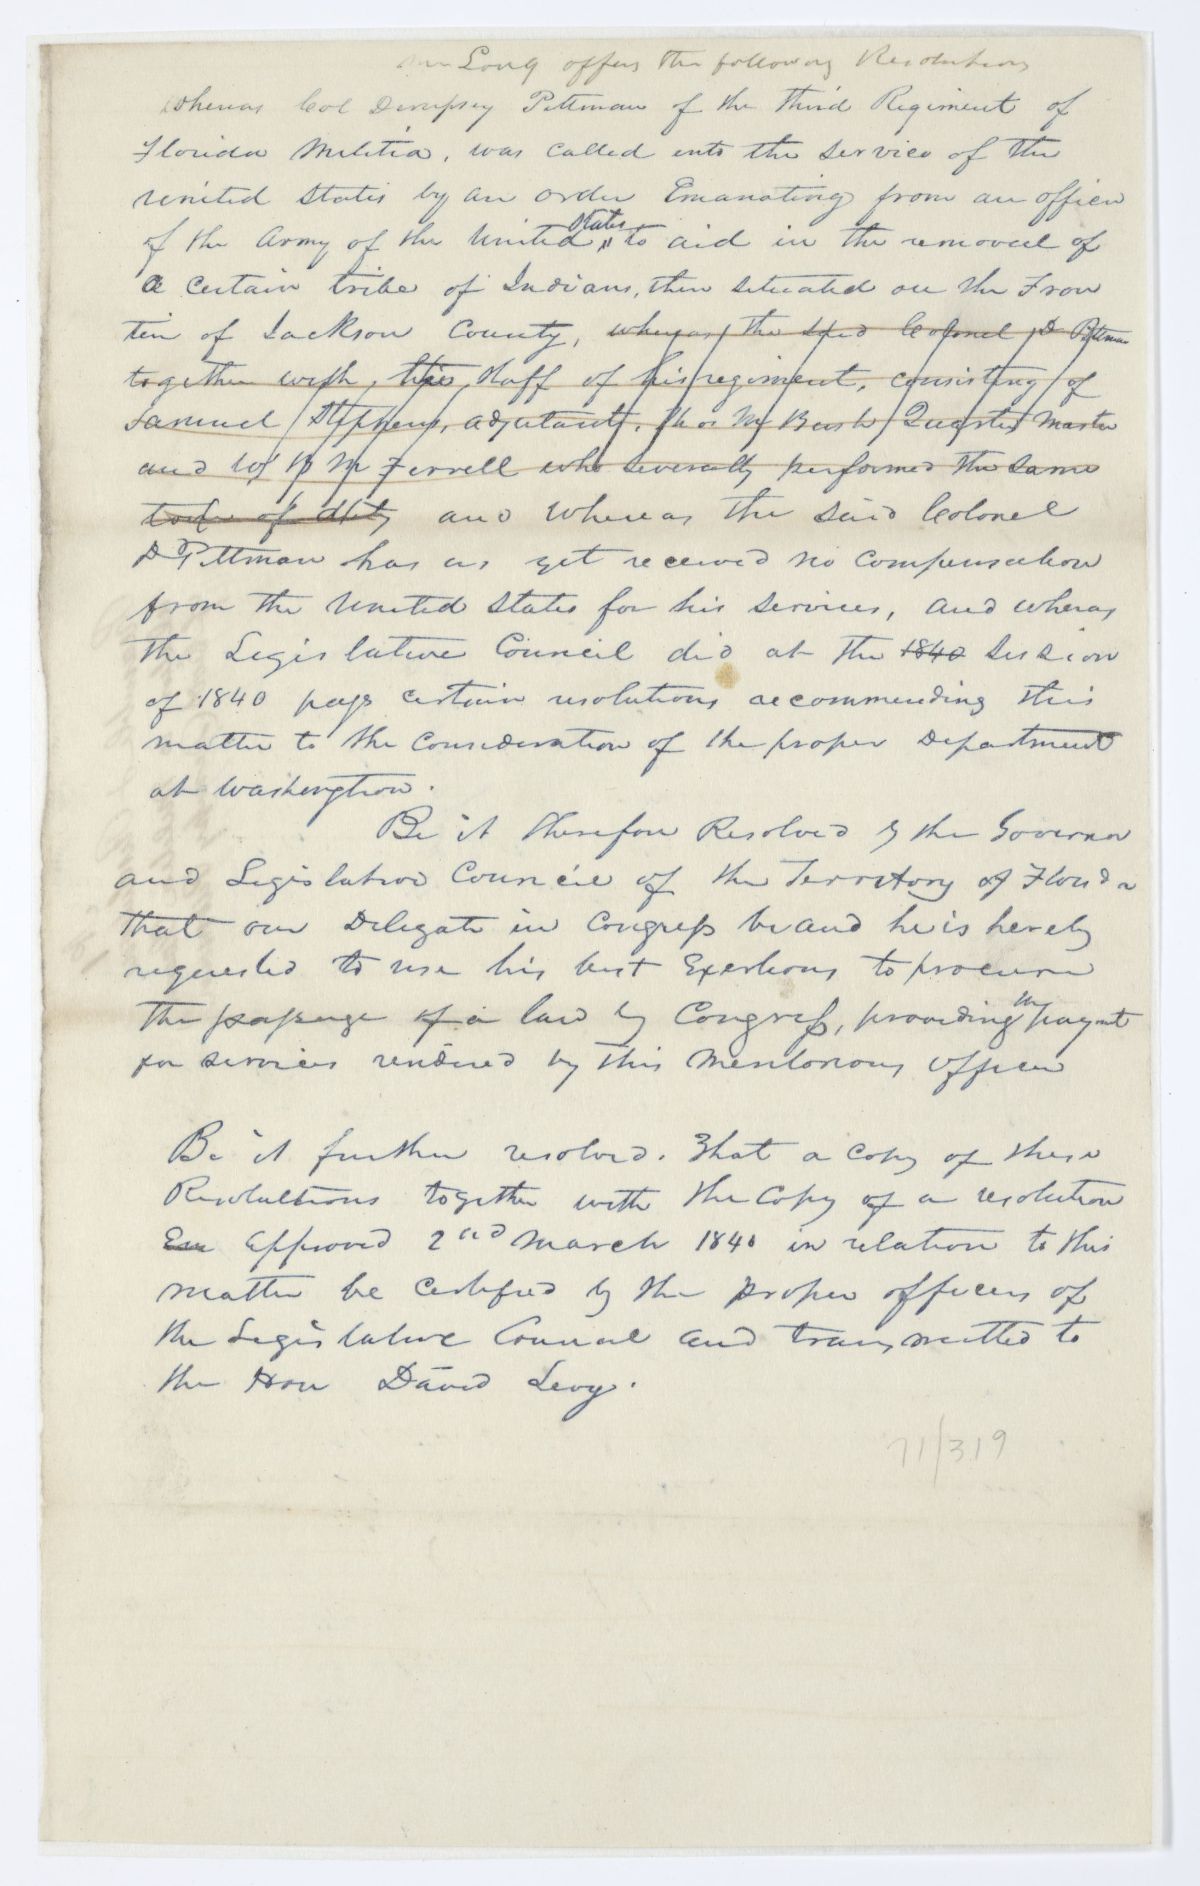 Mr Long offers the following Resolutions
Whereas Col Dempsey Pittman of the third Regiment of
Florida Militia, was called into the service of the
United States by an order Emanating from an officer
of the Army of the United States to aid in the removal of
a certain tribe of Indians, then situated on the Fron
tier of Jackson County, whereas the said Colonel D Pittman
together with the staff of his regiment, consisting of
Samuel Stephens, adjutant, Thos M Bush Quarter Master
and W M Ferrell who severally performed the same
of duty and Whereas the said Colonel
D Pittman has as yet received no compensation
from the United States for his services, and whereas
the Legislative Council did at the 1840 Session
of 1840 pass certain resolutions recommending this
matter to the consideration of the proper Department
at Washington.
Be it therefore Resolved by the Governor
and Legislative Council of the Territory of Florida
that our Delegate in Congress be and he is hereby
requested to use his best Exertions to procure
the passage of a law by Congress, providing the paymt
for services rendered by this Meritorious Officer
Be it further resolved. That a copy of these
Resolutions together with the Copy of a resolution
Approved 2nd March 1840 in relation to this
matter be certified by the proper officers of
the Legislative Council and transmitted to
the Hon David Levy.
71/319